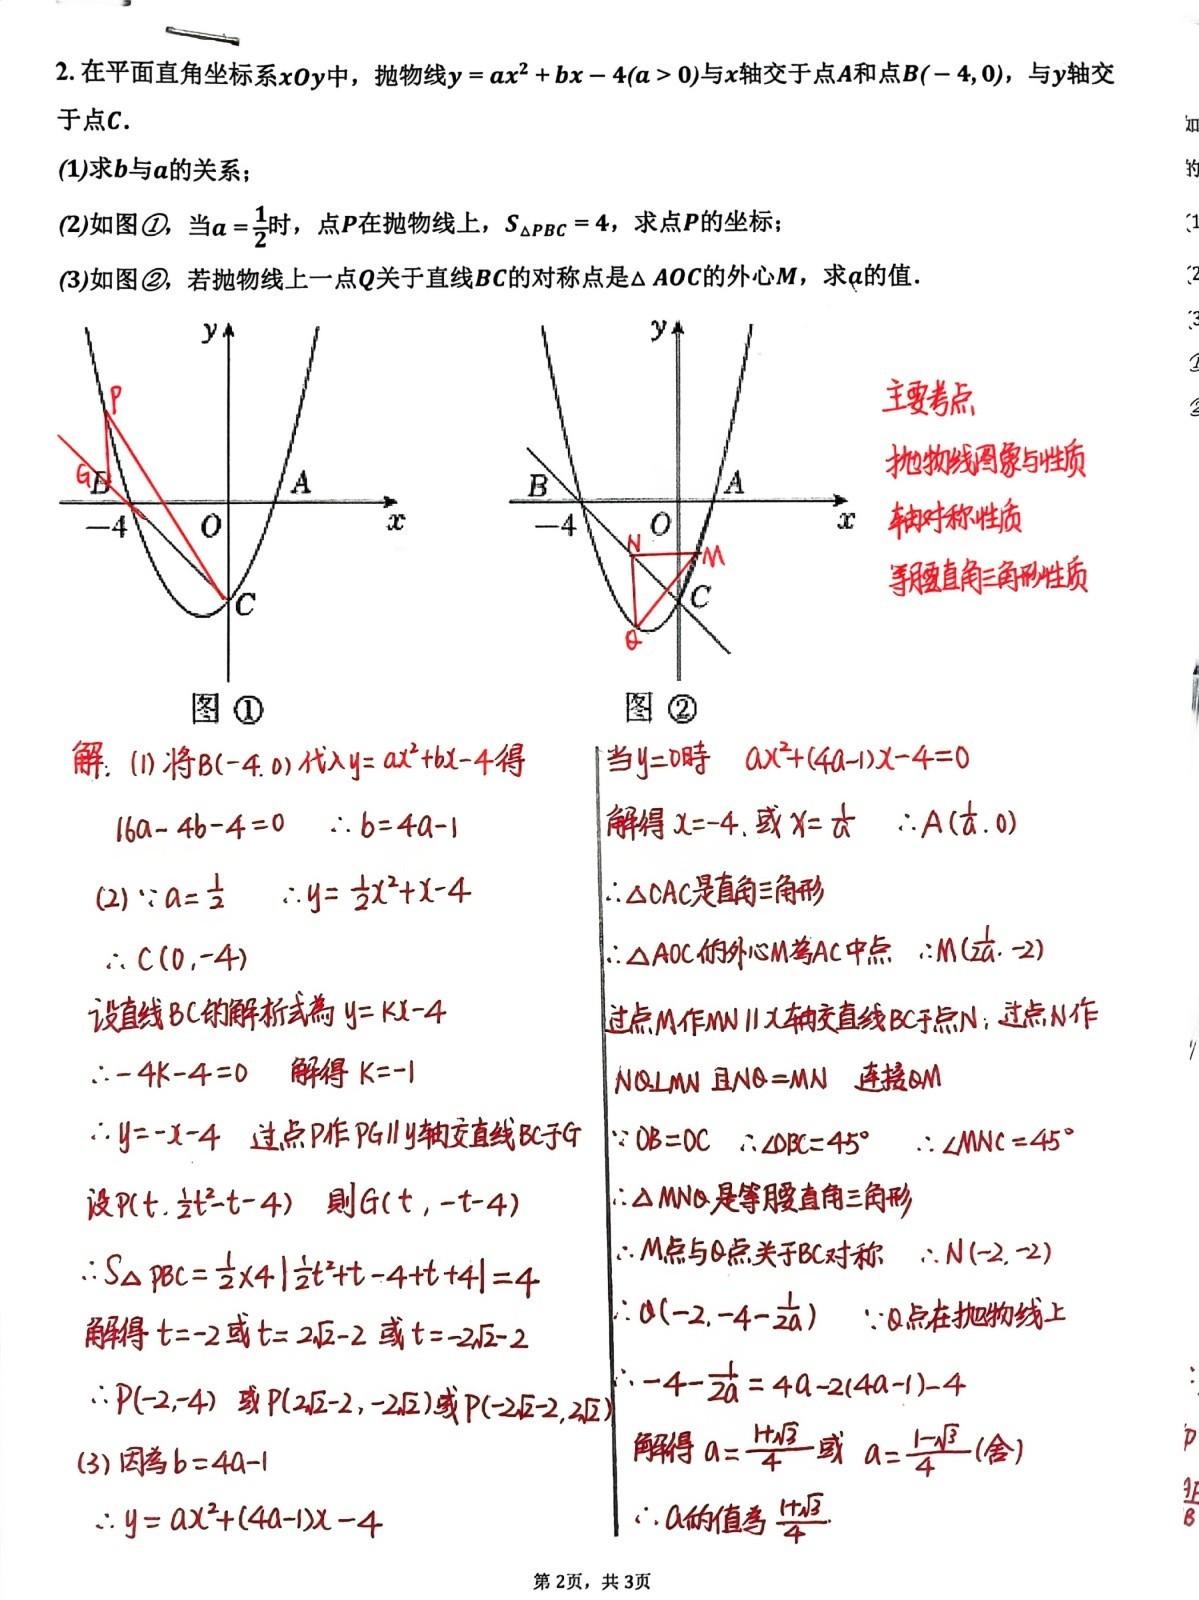 2. 在平面直角坐标系xOy中，抛物线y = ax² + bx − 4(a > 0)与x轴交于点A和点B(− 4, 0)，与y轴交
于点C.
(1)求b与a的关系；
(2)如图①，当a = 1/2时，点P在抛物线上，S△PBC = 4，求点P的坐标；
(3)如图②，若抛物线上一点Q关于直线BC的对称点是△ AOC的外心M，求a的值.
y
P
G B A
−4 O x
C
图 ①
y
B A
−4 O x
N M
C
Q
图 ②
主要考点
抛物线图象与性质
轴对称性质
等腰直角三角形性质
解: (1) 将B(-4.0)代入y= ax²+bx-4得
16a-4b-4=0 ∴b=4a-1
(2) ∵a=1/2 ∴y= 1/2x²+x-4
∴ C(0,-4)
设直线BC的解析式為 y= Kx-4
∴-4K-4=0 解得 K=-1
∴y=-x-4 过点P作PG∥y轴交直线BC于G
设P(t, 1/2t²-t-4) 則G(t, -t-4)
∴S△PBC= 1/2×4|1/2t²+t-4+t+4|=4
解得 t=-2或t=2√2-2 或t=-2√2-2
∴P(-2,-4) 或P(2√2-2, -2√2)或P(-2√2-2, 2√2)
(3) 因為b=4a-1
∴ y= ax²+(4a-1)x-4
当y=0時 ax²+(4a-1)x-4=0
解得 x=-4、或 x= 1/a ∴A(1/a.0)
∴△OAC是直角三角形
∴△AOC的外心M為AC中点 ∴M(1/2a. -2)
过点M作MN∥x轴交直线BC于点N; 过点N作
NQ⊥MN 且NQ=MN 连接QM
∵OB=OC ∴∠OBC=45° ∴∠MNC=45°
∴△MNQ是等腰直角三角形
∴M点与Q点关于BC对称 ∴N(-2,-2)
∴Q(-2,-4-1/2a) ∵Q点在抛物线上
∴-4-1/2a=4a-2(4a-1)-4
解得 a= 1+√3/4 或 a= 1-√3/4 (舍)
∴a的值為 1+√3/4.
第 2页，共 3页
如
的